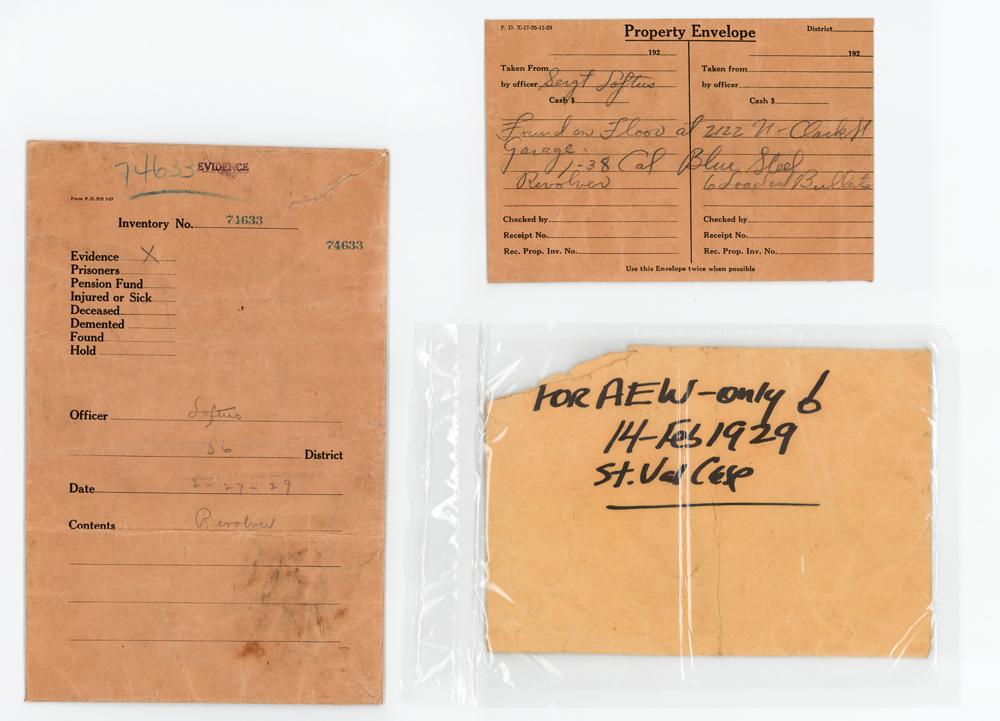 74633 EVIDENCE
Inventory No. 74633
74633
Evidence X
Prisoners
Pension Fund
Injured or Sick
Deceased
Demented
Found
Hold
Officer Loftus
36 District
Date 2-27-29
Contents Revolver
P. D. X-17-25-11-28
Property Envelope
District
192
192
Taken From
Taken from
by officer Sergt Loftus
by officer
Cash $
Cash $
Found on Floor at 2122 N-Clark St
Garage.
1-38 Cal Blue Steel
Revolver 6 Loaded Bullets
Checked by
Checked by
Receipt No.
Receipt No.
Rec. Prop. Inv. No.
Rec. Prop. Inv. No.
Use this Envelope twice when possible
FOR AEW-only 6
14-Feb 1929
St. Val Case